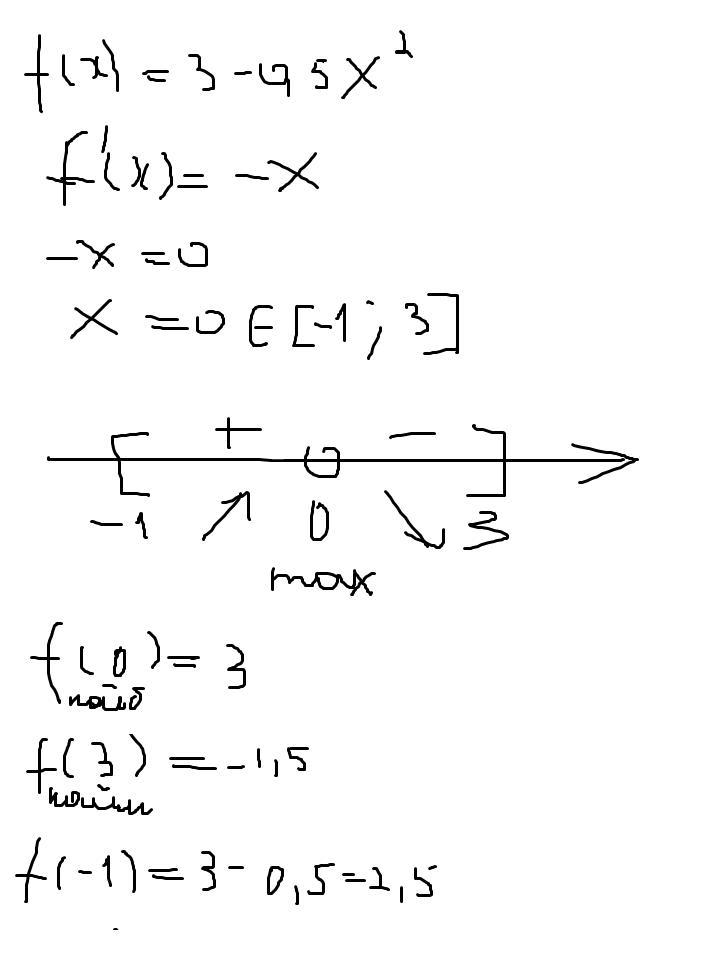 f(x) = 3 - 0,5x²
f'(x) = -x
-x = 0
x = 0 ∈ [-1; 3]
+ -
-1 0 3
max
f(0) = 3
наиб
f(3) = -1,5
наим
f(-1) = 3 - 0,5 = 2,5